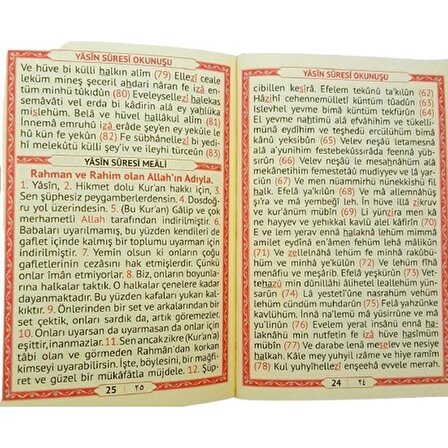 YÂSÎN SÛRESİ OKUNUŞU
cibillen kesîrâ. Efelem tekûnû ta'kılûn (62)
Hâzihî cehennemülletî küntüm tûadûn (63)
Islevhel yevme bimâ küntüm tekfürûn (64)
El yevme nahtimü alâ efvâhihim ve tükelli-
münâ eydîhim ve teşhedü ercülühüm bimâ
kânû yeksibûn (65) Velev neşâü letamesnâ
alâ a'yunihim
(66) Velev neşâü le mesahnâhüm alâ
mekânetihim
(67) Ve men nüammirhü nünekkishü fil
halk. Efelâ ya'kılûn (68) Ve mâ allemnâhüş
şi'ra ve mâ yembeğî leh. İn hüve illâ zikruv
ve kur'ânüm mübîn (69) Li yünzira men kâ-
ne hayyev ve yehıkkal kavlü alel kâfirîn (70)
E ve lem yerav ennâ halaknâ lehüm mimmâ
amilet eydînâ en'âmen fehüm lehâ mâlikûn
(71) Ve zellelnâhâ lehüm fe minhâ rakûbü-
hüm ve minhâ ye'külûn (72) Ve lehüm fîhâ
menâfiu ve meşârib. Efelâ yeşkürûn (73) Vet-
tehazû min dûnillâhi âliheten leallehüm yün-
sarûn (74) Lâ yestetîûne nasrahüm vehüm
lehüm cündüm muhdarûn (75) Felâ yahzünke
kavlühüm. İnnâ na'lemü mâ yüsirrûne ve mâ
yu'linûn (76) Evelem yeral insânü ennâ ha-
laknâhü min nutfetin fe izâ hüve hasîmüm
mübîn (77) Ve darabe lenâ meselev ve nesiye
halkah. Kâle mey yuhyil ızâme ve hiye ramîm
(78) Kul yuhyîhellezî enşeehâ evvele merrah.
24 ٢٤
YÂSÎN SÛRESİ OKUNUŞU
Ve hüve bi külli halkın alîm (79) Ellezî ceale
leküm mineş şeceril ahdari nâran fe izâ en-
tüm minhü tûkıdûn (80) Eveleysellezî halekas
semâvâti vel erda bi kâdirin alâ ey yahlüka
mislehüm. Belâ ve hüvel hallâkul alîm (81)
İnnemâ emruhû izâ erâde şey'en ey yekûle le
hû kün fe yekûn (82) Fe sübhânellezî bi yedi-
hî melekûtü külli şey'iv ve ileyhi türceûn (83)
YÂSÎN SÛRESİ MEÂLİ
Rahman ve Rahim olan Allah'ın Adıyla.
1. Yâsîn, 2. Hikmet dolu Kur'an hakkı için, 3.
Sen şüphesiz peygamberlerdensin. 4. Dosdoğ-
ru yol üzerindesin. 5. (Bu Kur'an) Gâlip ve çok
merhametli Allah tarafından indirilmiştir. 6.
Babaları uyarılmamış, bu yüzden kendileri de
gaflet içinde kalmış bir toplumu uyarman için
indirilmiştir. 7. Yemin olsun ki onların çoğu
gafletlerinin cezasını hak etmişlerdir. Çünkü
onlar îman etmiyorlar. 8. Biz, onların boyunla-
rına halkalar taktık. O halkalar çenelere kadar
dayanmaktadır. Bu yüzden kafaları yukarı kal-
kıktır. 9. Önlerinden bir set ve arkalarından bir
set çektik, onları sardık da, artık göremezler.
10. Onları uyarsan da uyarmasan da onlar için
eşittir, inanmazlar. 11. Sen ancak zikre (Kur'an'a)
tâbi olan ve görmeden Rahmân'dan korkan
kimseyi uyarabilirsin. İşte, böylesini, bir mağfi-
ret ve güzel bir mükâfatla müjdele. 12. Şüp-
25 ٢٥